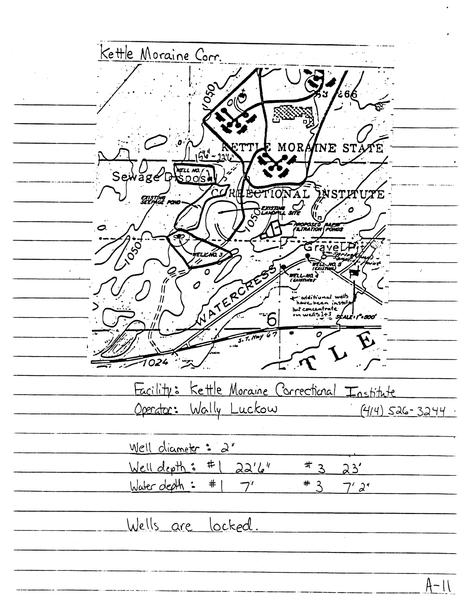 Kettle Moraine Corr.
1050
266
KETTLE MORAINE STATE
WELL NO. 1
Sewage Disposal
CORRECTIONAL INSTITUTE
EXISTING
SEEPAGE POND
EXISTING
LANDFILL SITE
1050
PROPOSED RAPID
FILTRATION PONDS
1050
Gravel Pit
WELL NO. 3
WATERCRESS
WELL NO.
(EXISTING)
WELL NO.
* additional wells
have been
but concentrate
on wells 1+3
SCALE: 1"=800'
6
S.T. Hwy 67
1024
TLE
Facility: Kettle Moraine Correctional Institute
Operator: Wally Luckow (414) 526-3244
Well diameter: 2"
Well depth: #1 22'6" #3 23'
Water depth: #1 7' #3 7'2"
Wells are locked.
A-11